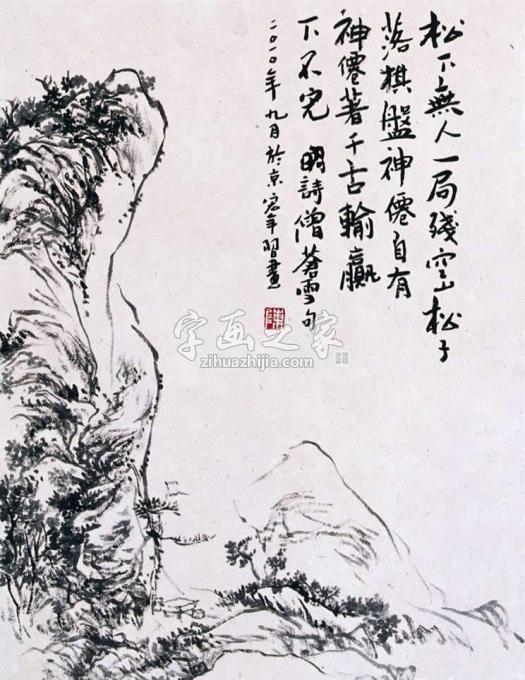 松下無人一局殘空山松子
落棋盤神僊自有
神僊著千古輸贏
下不完 明詩僧蒼雪句
二〇一〇年九月於京宏年習畫
字画之家
zihuazhijia.com